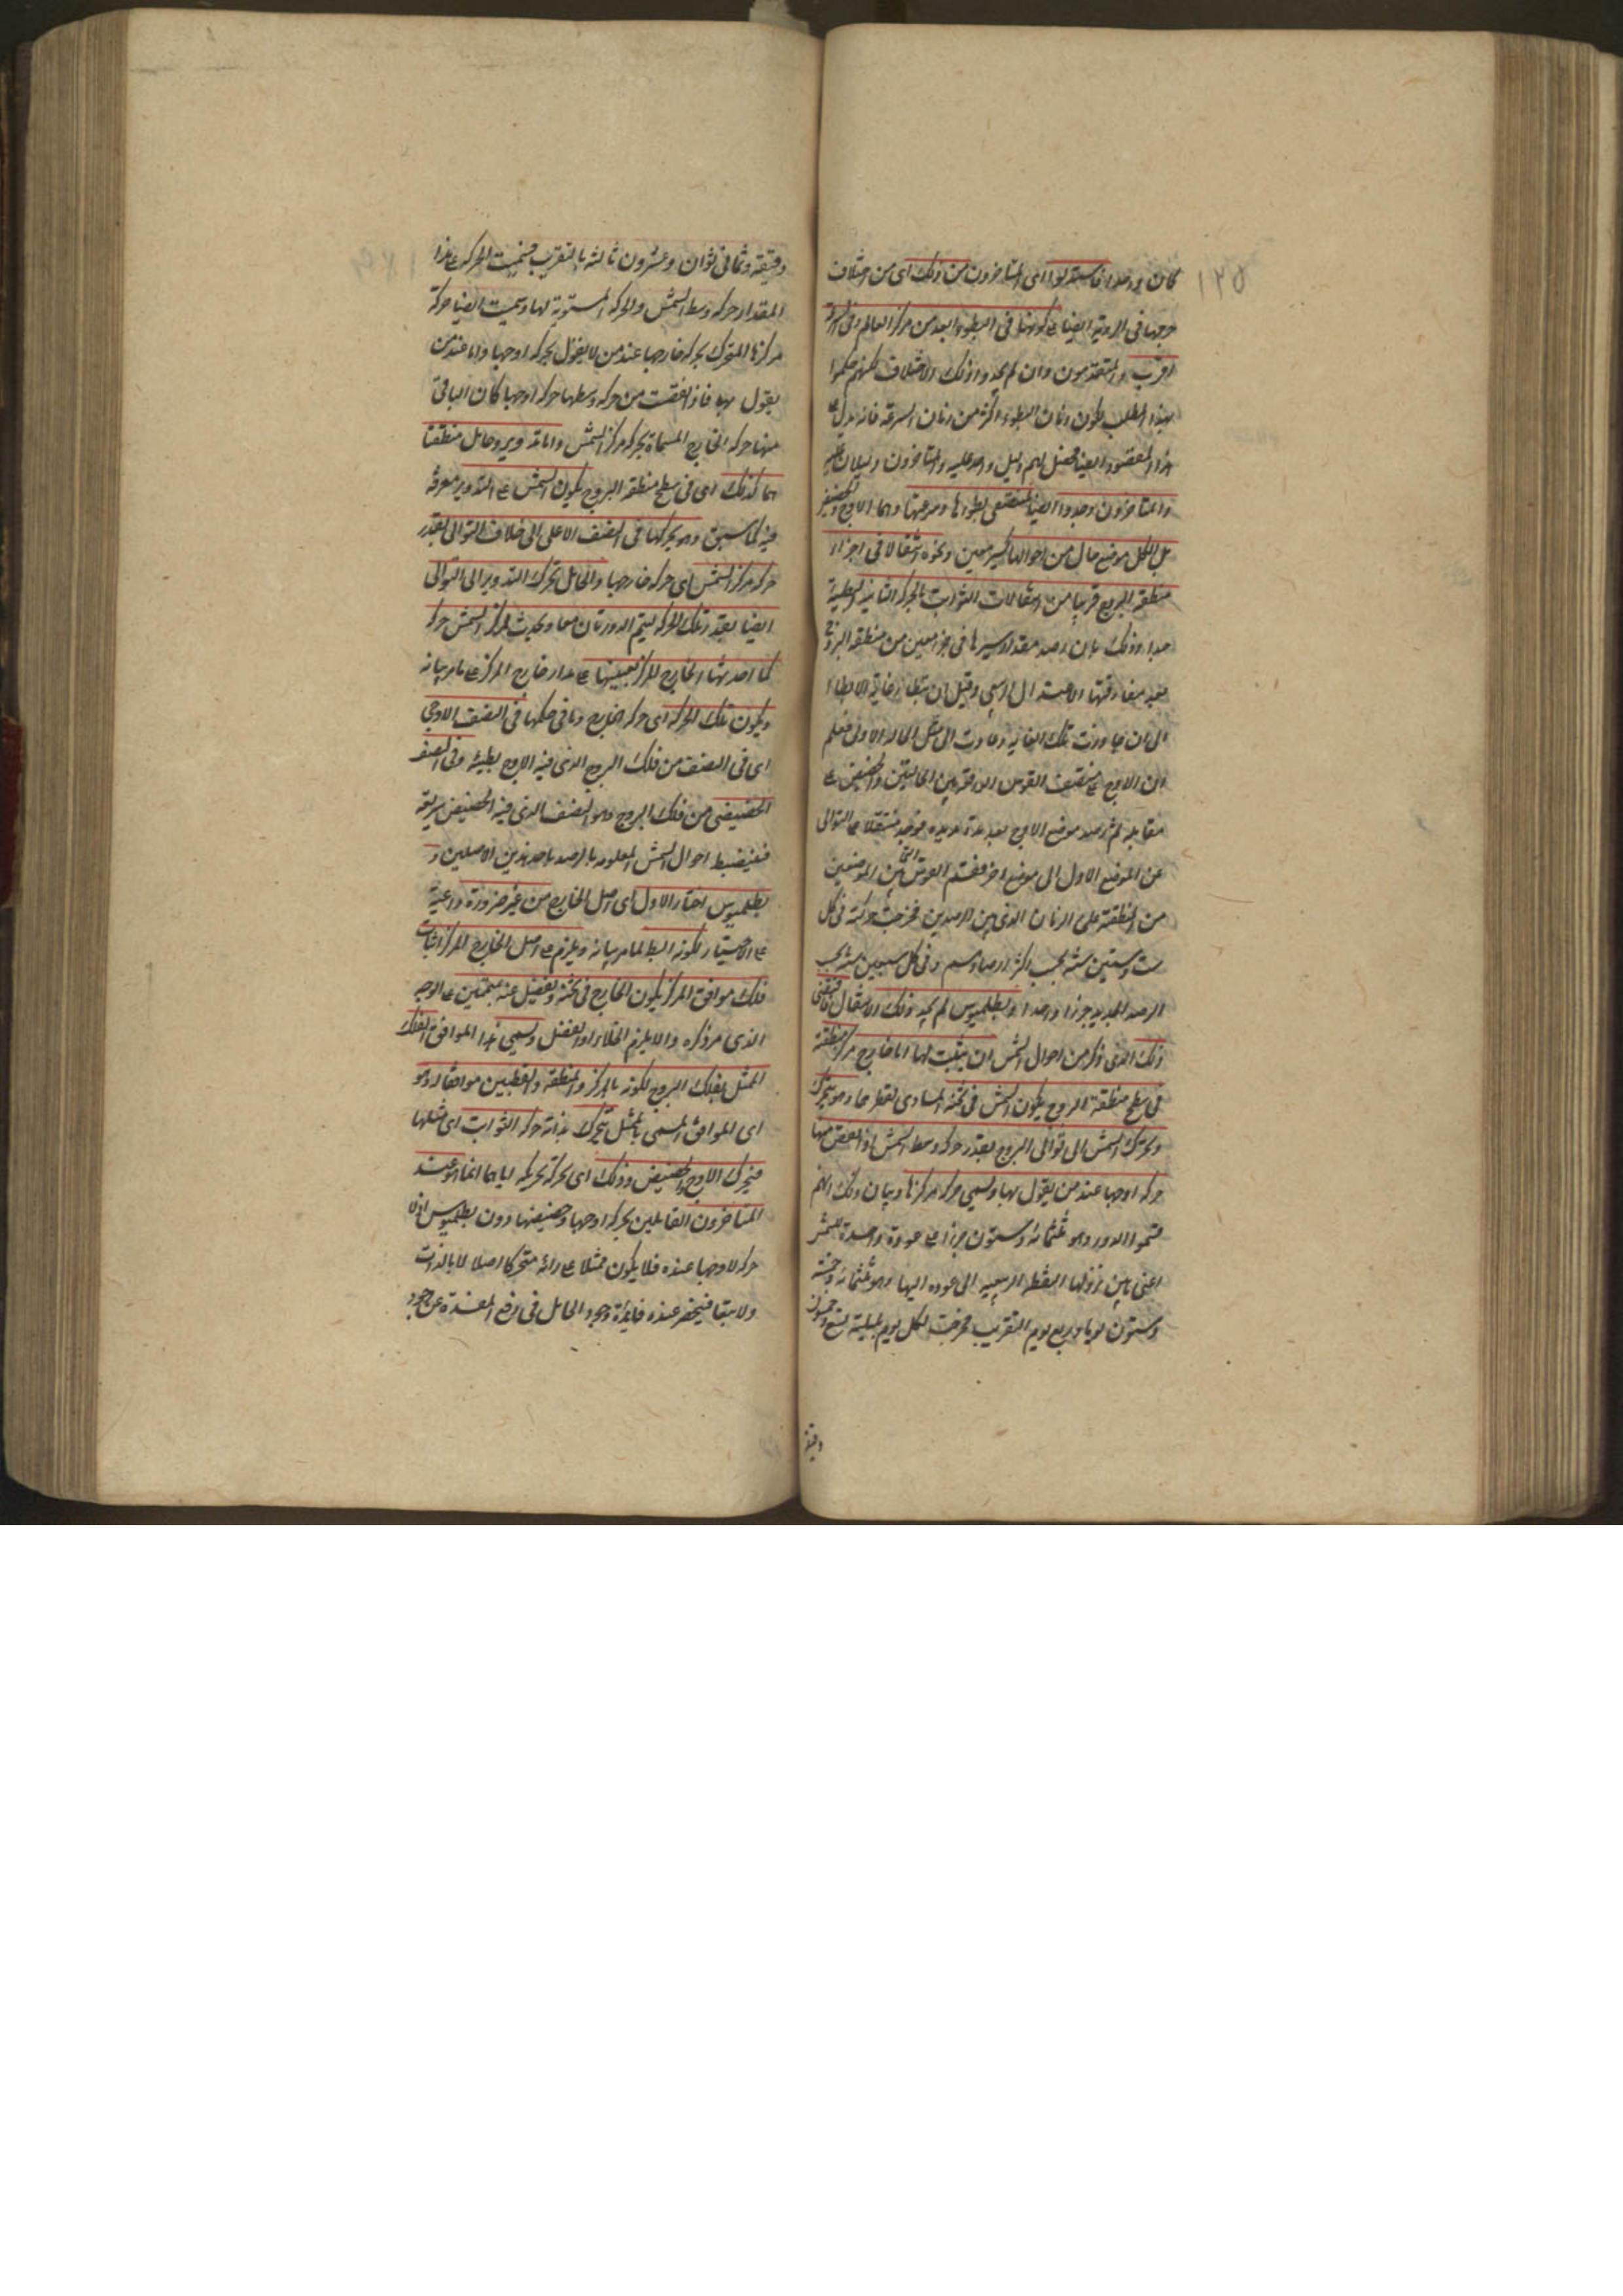 ١٢٥
كان وجدا فاستدلوا اى المتاخرون من ذلك اى من اختلاف
جرمها فى الروية ايضا على كونها فى البطوء ابعد من مركز العالم وفى السرعة
اقرب والمتقدمون وان لم يجدوا ذلك الاختلاف لكنهم حكموا
بهذا المطلب لكون زمان البطوء اكثر من زمان السرعة فانه يدل على
هذا المقصود ايضا فحصل لهم دليل واحد عليه وللمتاخرين دليلان عليه
والمتاخرون وجدوا ايضا لمنتصفى بطوءها وسرعتها وهما الاوج والحضيض
بل لكل موضع حال من احوالها كمسير معين ونحوه انتقالا فى اجزاء
منطقة البروج قريبا من انتقالات الثوابت بالحركة الثانية البطيئة
جدا وذلك بان رصد مقدار مسيرها فى جزء معين من منطقة البروج
بعد مفارقتها الاعتدال الربيعى وقبل ان تبلغ غاية الابطاء
الى ان جاوزت تلك الغاية وعادت الى مثل الحالة الاولى فعلم
ان الاوج على منتصف القوس الواقعة بين الحالتين والحضيض على
مقابله ثم رصد موضع الاوج بعد مدة مديدة فوجد منتقلا على التوالى
عن الموضع الاول الى موضع اخر فقسم القوس التى بين الموضعين
من المنطقة على الزمان الذى بين الرصدين فخرجت حركته فى كل
ست وستين سنة بحسب اكثر ارصادهم وفى كل سبعين سنة بحسب
الرصد الجديد جزءا واحدا وبطلميوس لم يجد ذلك الانتقال فاقتضى
ذلك الذى ذكر من احوال الشمس ان يثبت لها اما خارج مركز منطقته
فى سطح منطقة البروج يكون الشمس فى ثخنه المساوى لقطرها وهو يتحرك
ويحرك الشمس الى توالى البروج بقدر حركة وسط الشمس اذا نقص منها
حركة اوجها عند من يقول بها ويسمى حركة مركزها وبيان ذلك انهم
قسموا الدور وهو ثلثمائة وستون جزءا على عودة واحدة للشمس
اعنى ما بين نزولها النقطة الربيعية الى عوده اليها وهو ثلثمائة وخمسة
وستون يوما وربع يوم بالتقريب فخرجت لكل يوم بليلته تسع وخمسون
دقيقة
دقيقة وثمانى ثوان وعشرون ثالثة بالتقريب فسميت الحركة بهذا
المقدار حركة وسط الشمس والحركة المستوية لها وسميت ايضا حركة
مركزها المتحرك بحركة خارجها عند من لا يقول بحركة اوجها واما عند من
يقول بها فاذا نقصت من حركة وسطها حركة اوجها كان الباقى
منها حركة الخارج المسماة بحركة مركز الشمس واما تدوير وحامل منطقتا
هما كذلك اى فى سطح منطقة البروج يكون الشمس على التدوير مغرقة
فيه كما سبق وهو يحركها فى النصف الاعلى الى خلاف التوالى بقدر
حركة مركز الشمس اى حركة خارجها والحامل يحرك التدوير الى التوالى
ايضا بقدر تلك الحركة ليتم الدورتان معا ويحدث لمركز الشمس حركة
كما احدثها الخارج المركز بعينها على مدار خارج المركز على ما مر بيانه
ويكون تلك الحركة اى حركة الخارج وما فى حكمها فى النصف الاوجى
اى فى النصف من فلك البروج الذى فيه الاوج بطيئة وفى النصف
الحضيضى من فلك البروج وهو النصف الذى فيه الحضيض سريعة
فينضبط احوال الشمس المعلومة بالرصد باحد هذين الاصلين و
بطلميوس اختار الاول اى اصل الخارج من غير ضرورة داعية
على الاختيار لكونه ابسط لما مر بيانه ويلزم على اصل الخارج المركز اثبات
فلك موافق المركز يكون الخارج فى ثخنه ويفضل عنه بمتممين على الوجه
الذى مر ذكره والا يلزم الخلاء او الفضل ويسمى هذا الموافق الفلك
الممثل بفلك البروج لكونه بالمركز والمنطقة والقطبين موافقا له وهو
اى الموافق المسمى بالممثل يتحرك بذاته حركة الثوابت اى مثلها
فيحرك الاوج والحضيض وذلك اى تحركه بحركة اياهما انما هو عند
المتاخرون القايلين بحركة اوجها وحضيضها دون بطلميوس اذ لا
حركة لاوجها عنده فلا يكون ممثلا على رائه متحركا اصلا لا بالذات
ولا تبعا فينحصر عنده فائدة وجود الحامل فى رفع المفسدة عن وجود